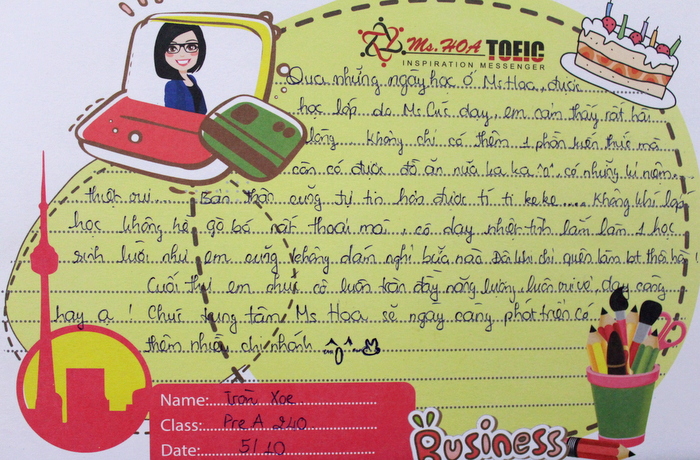 Ms. HOA TOEIC
INSPIRATION MESSENGER
Qua những ngày học ở Ms Hoa, được
học lớp do Ms Cúc dạy, em cảm thấy rất hài
lòng. Không chỉ có thêm 1 phần kiến thức mà
còn có được đồ ăn nữa ka ka ^o^, có những kỉ niệm
thiệt vui... Bản thân cũng tự tin hơn được tí ti ke ke.... Không khí lớp
học không hề gò bó rất thoải mái, cô dạy nhiệt tình lắm lắm. 1 học
sinh lười như em cũng không dám nghỉ bữa nào. Đôi khi chỉ quên làm bt thôi hà!
Cuối thư em chúc cô luôn tràn đầy năng lượng, luôn vui vẻ, dạy càng
hay ạ! Chúc trung tâm Ms Hoa sẽ ngày càng phát triển có
thêm nhiều chi nhánh
Name: Trần Xoe
Class: Pre A 240
Date: 5/10
Business